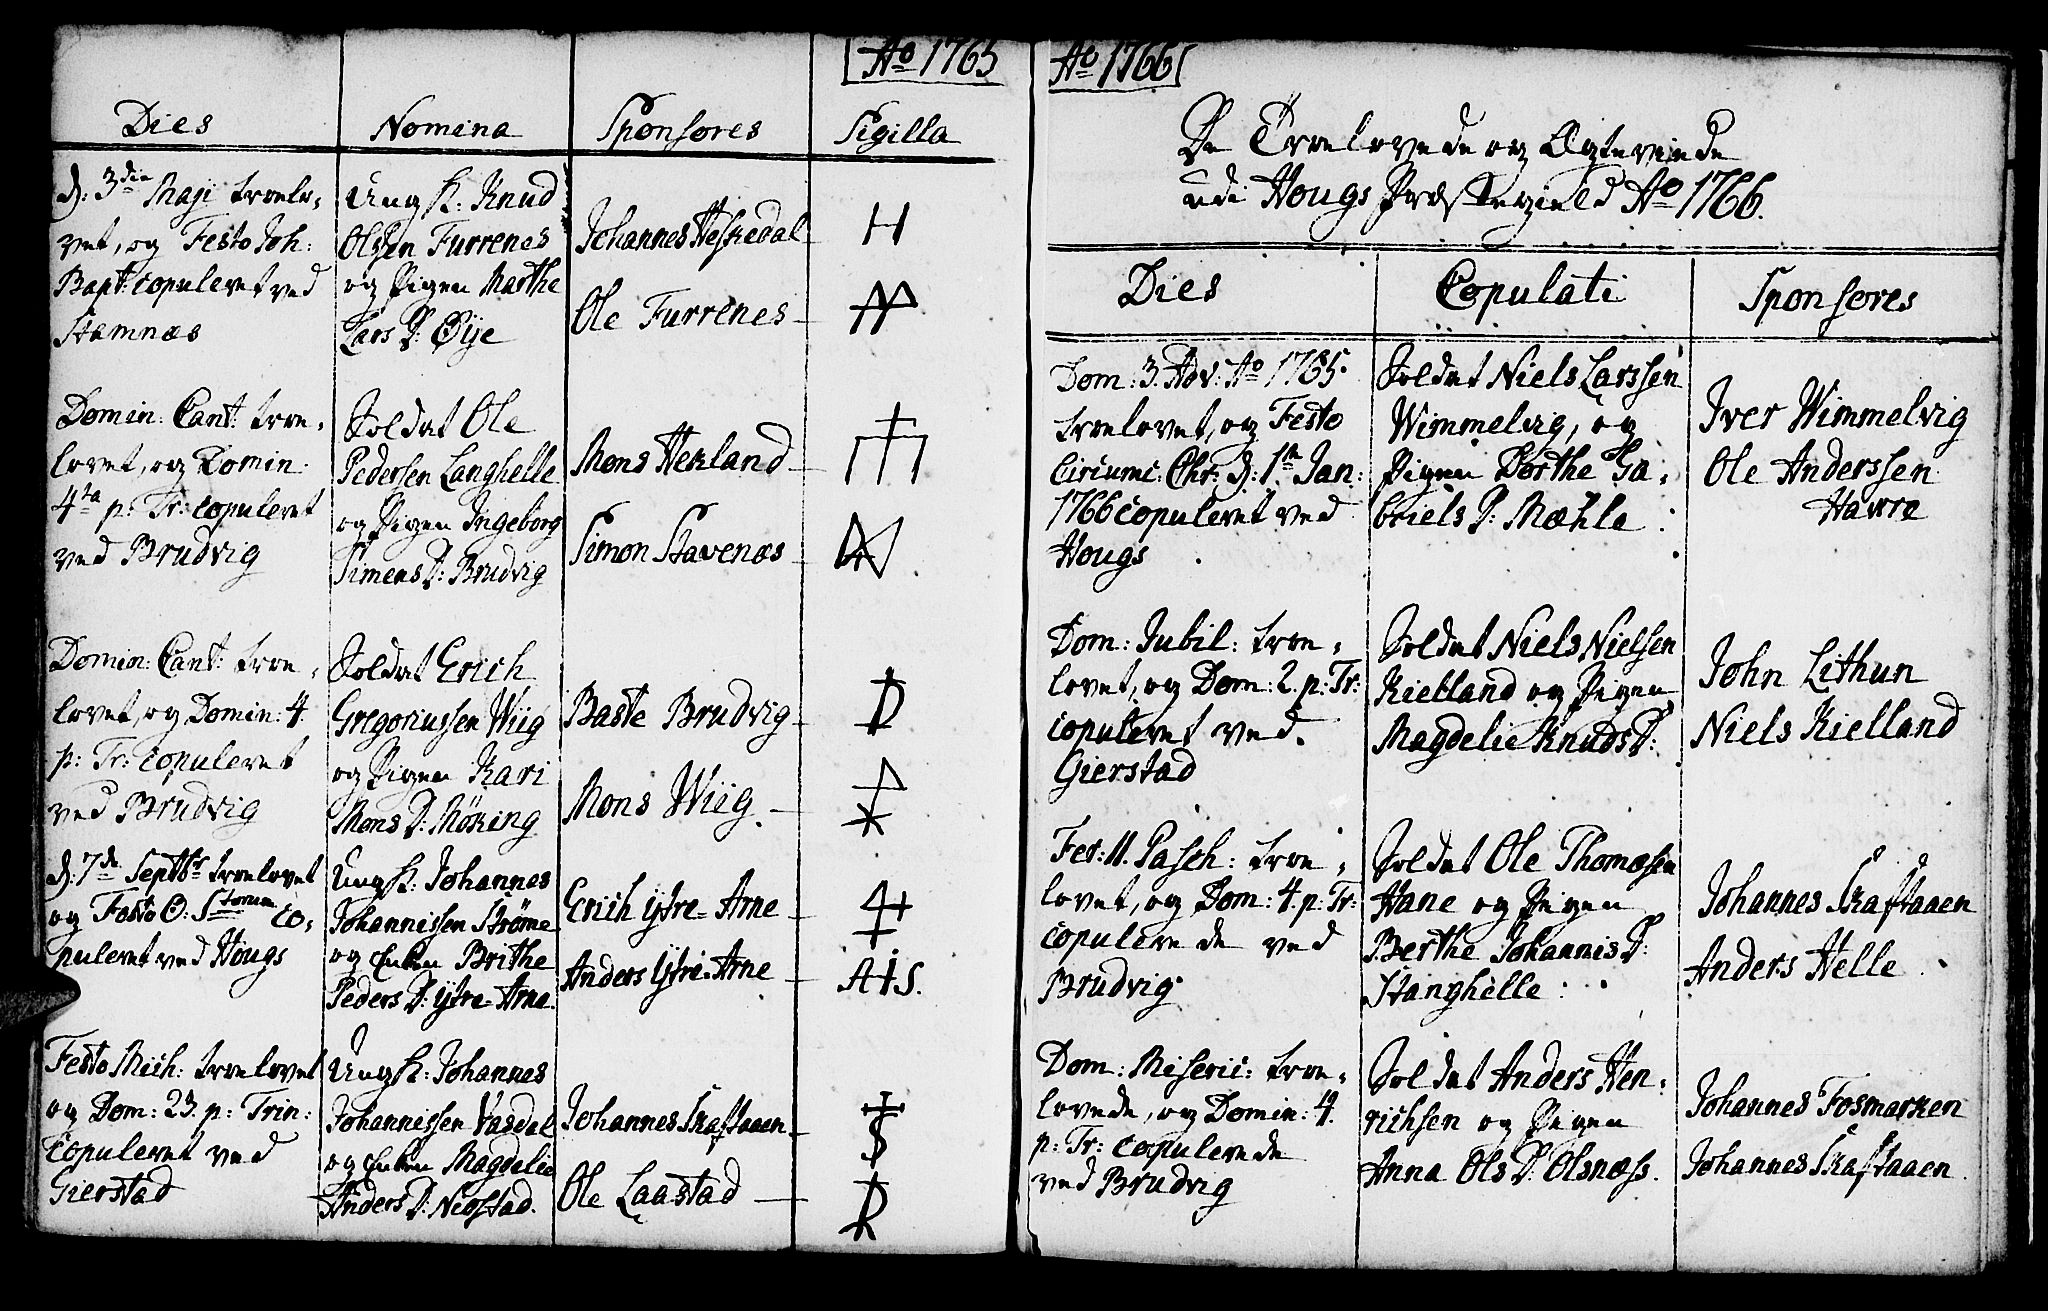 Ao 1765
Dies
Nomina
Sponsores
Sigilla
d: 3die Maji troelo-
vet, og Festo Joh:
Bapt: copuleret ved
Stamnæs
Ung K: Knud
Olsen Furrenes
og Pigen Marthe
Lars D: Øÿe
Johannes Heskedal
Ole Furrenes
H
Domin: Cant: troe-
lovet, og Domin:
4ta p: Tr: copuleret
ved Brudvig
Soldat Ole
Pedersen Langhelle
og Pigen Ingeborg
Simens D: Brudvig
Mons Hekland
Simon Stavenæs
Domin: Cant: troe-
lovet, og Domin: 4.
p: Tr: copuleret
ved Brudvig
Soldat Erich
Gregoriussen Wiig
og Pigen Kari
Mons D: Möking
Baste Brudvig
Mons Wiig
d: 7de Septbr troelovet
og Festo O. Storum co-
puleret ved Hougs
Ung K: Johannes
Johannissen Ströme
og Enken Brithe
Peders D: ÿtre-Arne
Erich ÿtre-Arne
Anders ÿtre-Arne
A I S.
Festo Mich: troelovet
og Dom: 23. p: Trin:
copuleret ved
Gierstad
Ung K: Johannes
Johannissen Vasdal
og Enken Magdelie
Anders D: Neostad.
Johannes Skaftaaen
Ole Laastad
Ao 1766
De Troelovede og Ægteviede
udi Hougs Præstegield Ao 1766.
Dies
Copulati
Sponsores
Dom: 3. Adv: Ao 1765.
troelovet, og Festo
Circumc: Chr: d: 1te Jan:
1766 copuleret ved
Hougs
Soldat Niels Larssen
Wimmelvig, og
Pigen Dorthe Ga-
briels D: Mæhle
Iver Wimmelvig
Ole Anderssen
Havre
Dom: Jubil: troe-
lovet, og Dom: 2. p: Tr:
copuleret ved
Gierstad
Soldat Niels Nielsen
Kielland og Pigen
Magdelie Knuds D:
John Lithun
Niels Kielland
Fer: II. Pasch: troe-
lovet, og Dom: 4. p: Tr:
copulerede ved
Brudvig
Soldat Ole Thomæsen
Hane og Pigen
Berthe Johannis D:
Stanghelle
Johannes Skaftaaen
Anders Helle
Dom: Miseric: troe-
lovede, og Domin: 4.
p: Tr: copulerede
ved Brudvig
Soldat Anders Hen-
richsen og Pigen
Anna Ols D: Olsnæss.
Johannes Fosmarken
Johannes Skaftaaen